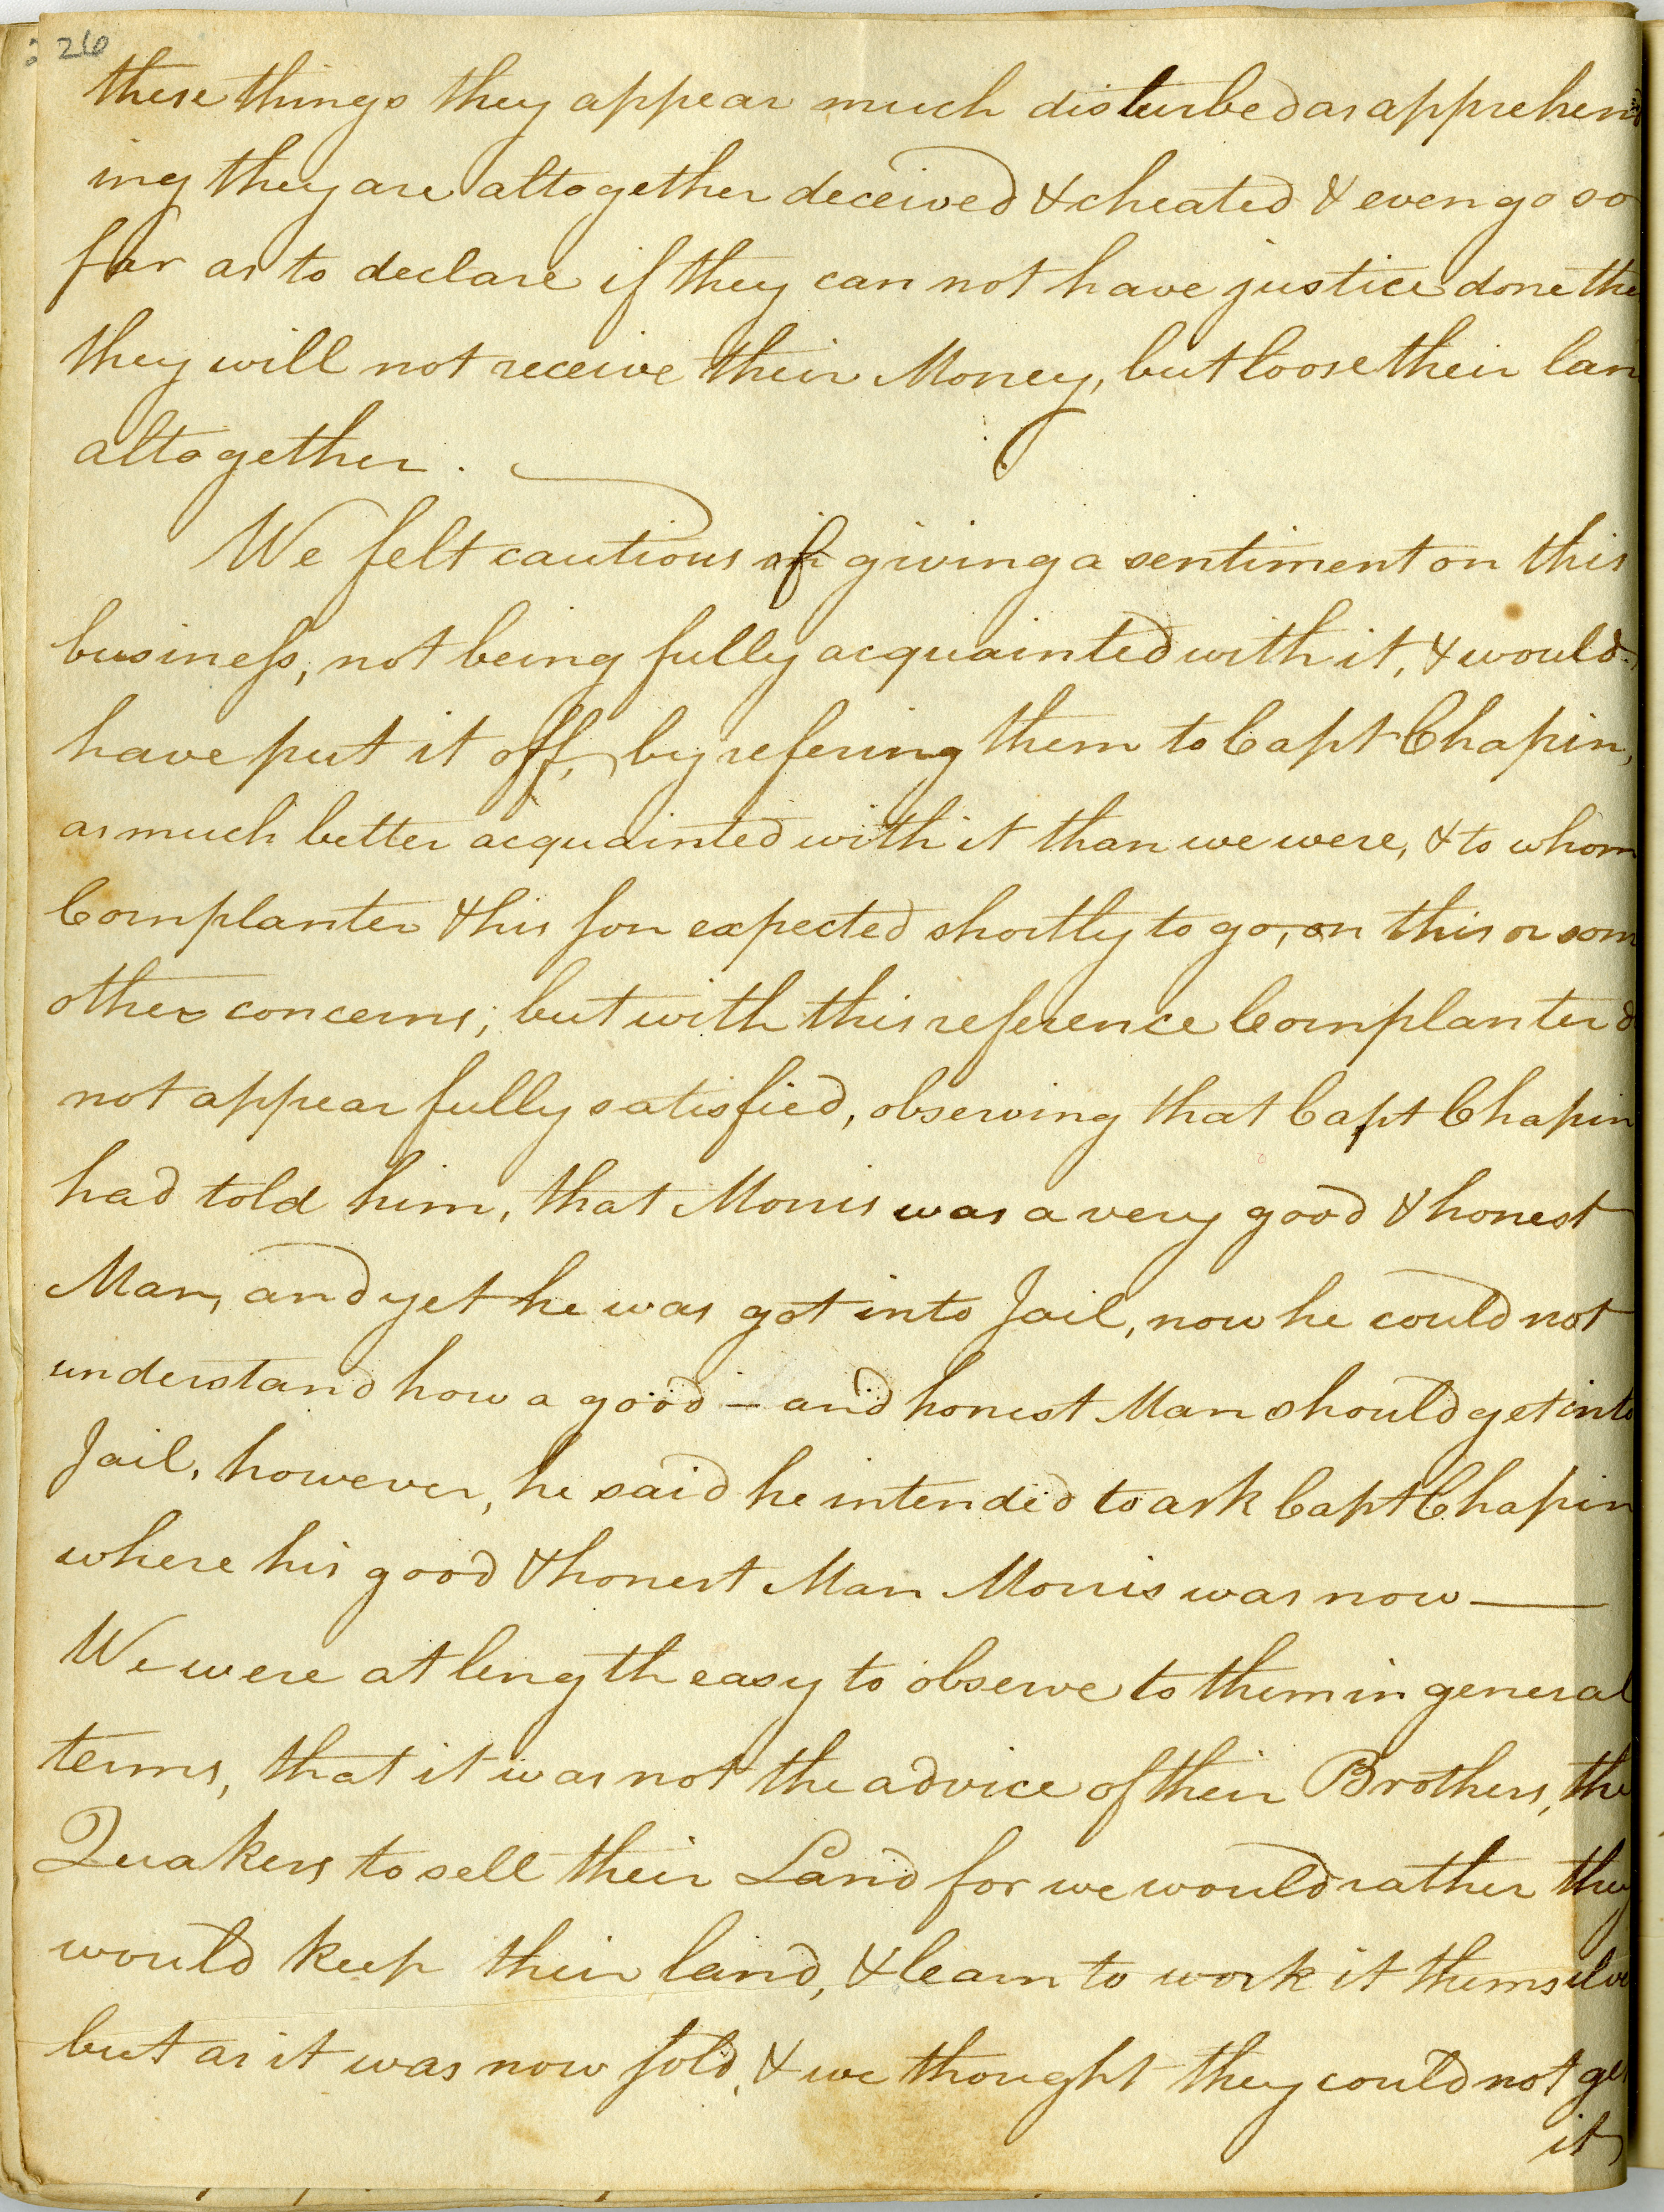 26
these things they appear much disturbed as apprehend
ing they are altogether deceived & cheated & even go so
far as to declare if they can not have justice done the
they will not receive their Money, but loose their lan
altogether.
We felt cautious of giving a sentiment on this
business, not being fully acquainted with it, & would
have put it off, by refering them to Capt Chapin,
as much better acquainted with it than we were, & to whom
Cornplanter & his son expected shortly to go, on this or som
other concerns; but with this reference Cornplanter d
not appear fully satisfied, observing that Capt Chapin
had told him, that Morris was a very good & honest
Man, and yet he was got into Jail, now he could not
understand how a good – and honest Man should get into
Jail, however, he said he intended to ask Capt Chapin
where his good & honest Man Morris was now —
We were at length easy to observe to them in general
terms, that it was not the advice of their Brothers, the
Quakers to sell their Land for we would rather they
would keep their land, & learn to work it themselve
but as it was now sold, & we thought they could not get
it